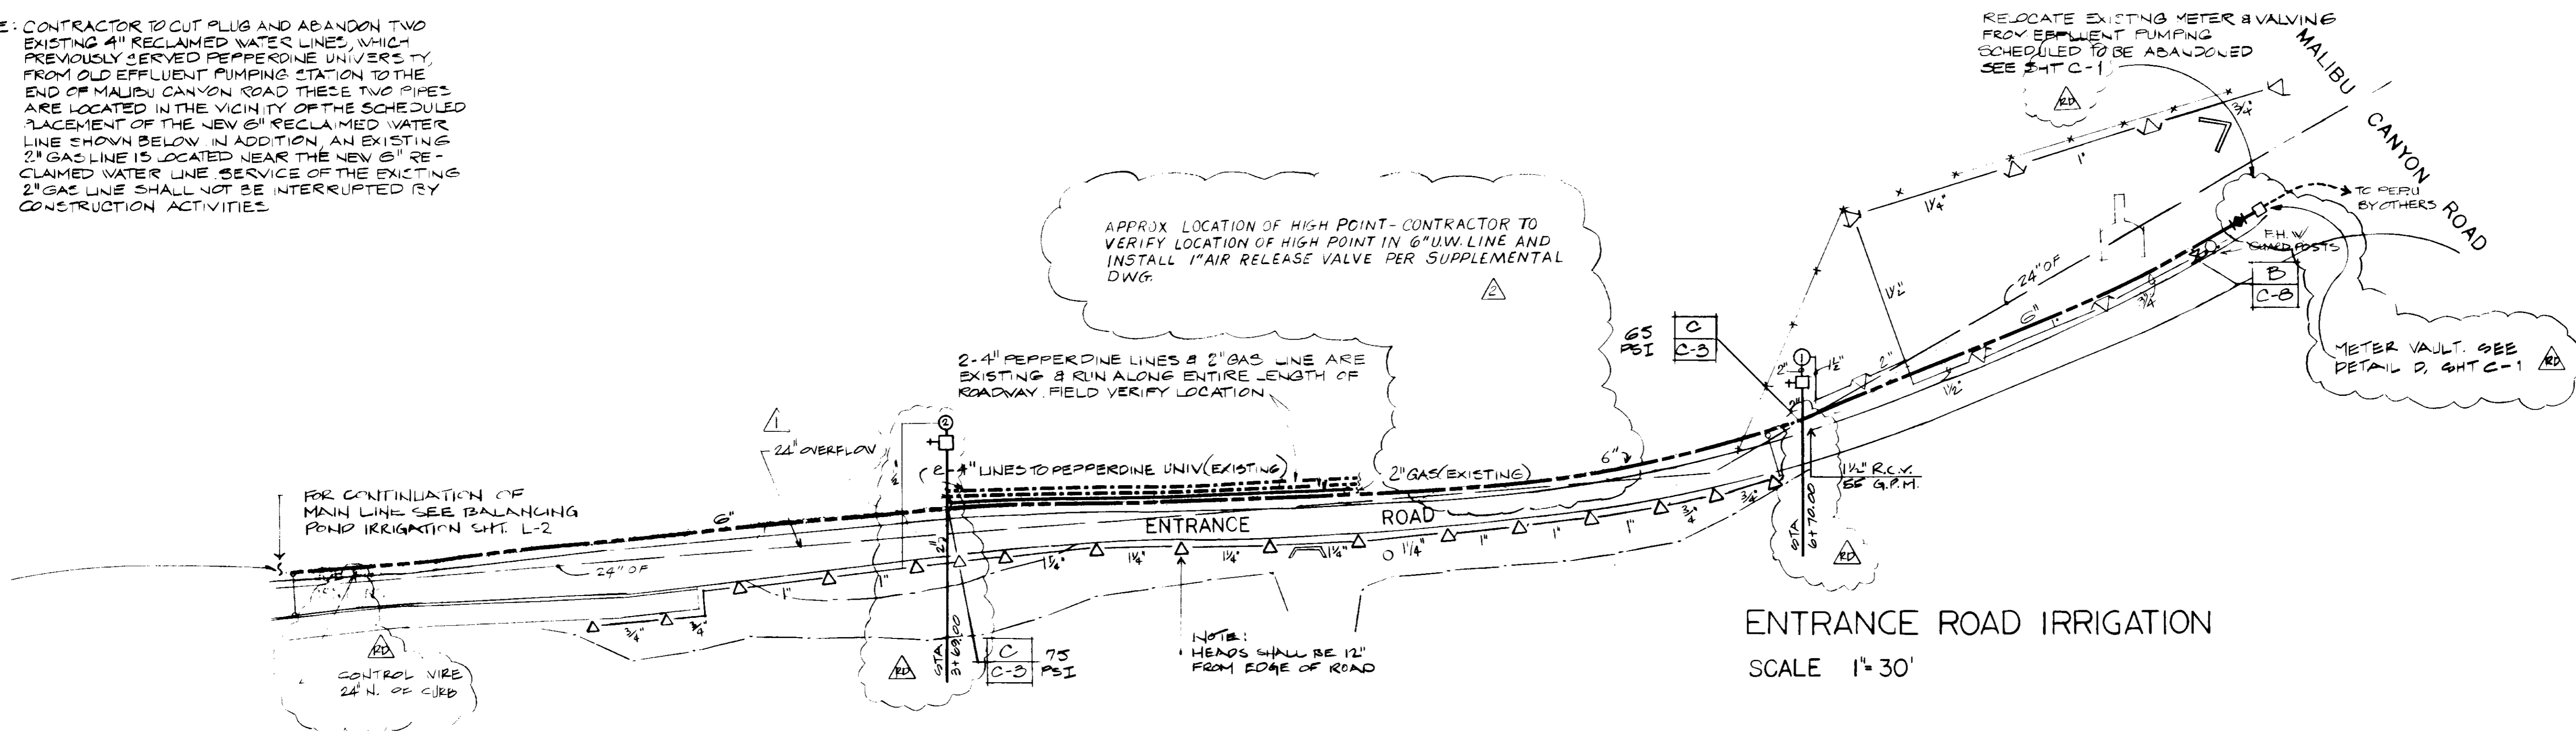 E: CONTRACTOR TO CUT PLUG AND ABANDON TWO
EXISTING 4" RECLAIMED WATER LINES, WHICH
PREVIOUSLY SERVED PEPPERDINE UNIVERSITY,
FROM OLD EFFLUENT PUMPING STATION TO THE
END OF MALIBU CANYON ROAD THESE TWO PIPES
ARE LOCATED IN THE VICINITY OF THE SCHEDULED
PLACEMENT OF THE NEW 6" RECLAIMED WATER
LINE SHOWN BELOW. IN ADDITION, AN EXISTING
2" GAS LINE IS LOCATED NEAR THE NEW 6" RE-
CLAIMED WATER LINE. SERVICE OF THE EXISTING
2" GAS LINE SHALL NOT BE INTERRUPTED BY
CONSTRUCTION ACTIVITIES
RELOCATE EXISTNG METER & VALVING
FROM EFFLUENT PUMPING
SCHEDULED TO BE ABANDONED
SEE SHT C-1
RD
MALIBU CANYON ROAD
3/4"
1"
1 1/4"
1 1/2"
TO PEPU
BY OTHERS
F.H. W/
GUARD POSTS
B
C-8
24" OF
6"
1"
3/4"
METER VAULT. SEE
DETAIL D, SHT C-1
RD
APPROX LOCATION OF HIGH POINT-CONTRACTOR TO
VERIFY LOCATION OF HIGH POINT IN 6" U.W. LINE AND
INSTALL 1" AIR RELEASE VALVE PER SUPPLEMENTAL
DWG.
2
65
PSI
C
C-3
1
2"
1 1/2"
2"
2"
1 1/2"
2-4" PEPPERDINE LINES & 2" GAS LINE ARE
EXISTING & RUN ALONG ENTIRE LENGTH OF
ROADWAY. FIELD VERIFY LOCATION
1
24" OVERFLOW
2
2-4" LINES TO PEPPERDINE UNIV (EXISTING)
2" GAS (EXISTING)
6"
1 1/2" R.C.V.
55 G.P.M.
STA
6+70.00
RD
FOR CONTINUATION OF
MAIN LINE SEE BALANCING
POND IRRIGATION SHT. L-2
6"
24" OF
2"
ENTRANCE ROAD
3/4"
3/4"
1"
1"
1 1/4"
1 1/4"
1 1/4"
1 1/4"
1 1/4"
1"
1"
1"
3/4"
3/4"
RD
CONTROL WIRE
24" N. OF CURB
RD
STA
3+69.00
C
C-3
75
PSI
NOTE:
HEADS SHALL BE 12"
FROM EDGE OF ROAD
ENTRANCE ROAD IRRIGATION
SCALE 1"=30'